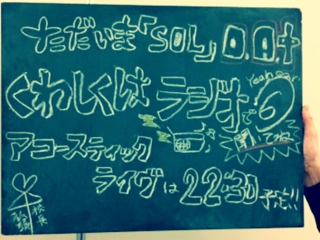 ただいま「SOL」O.A.中
くわしくは ラジオで
アコースティック
ライヴは 22:30 予定!!